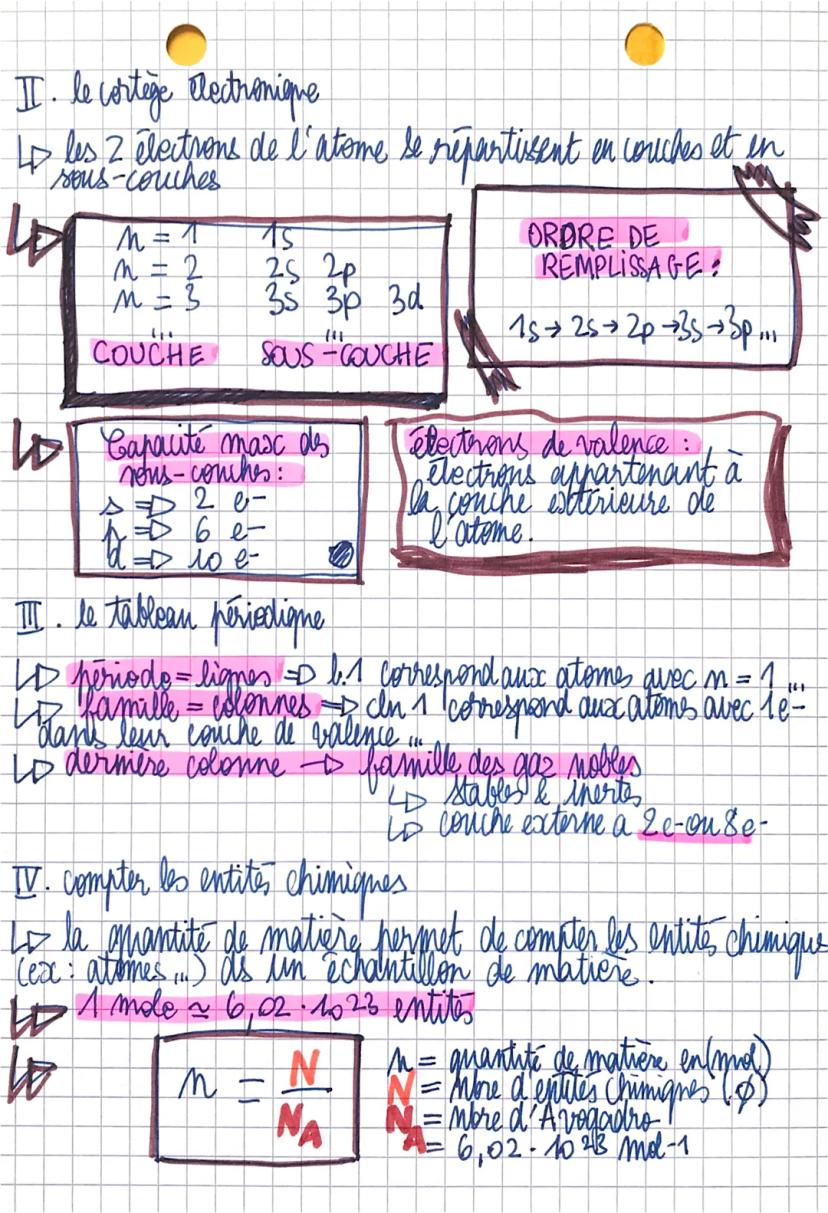 II. le cortège électronique
↳ les 2 électrons de l'atome se répartissent en couches et en
sous-couches
n = 1 1s
n = 2 2s 2p
n = 3 3s 3p 3d
... ...
COUCHE SOUS-COUCHE
ORDRE DE
REMPLISSAGE :
1s → 2s → 2p → 3s → 3p ...
Capacité max des
sous-couches :
s ⇒ 2 e-
p ⇒ 6 e-
d ⇒ 10 e-
électrons de valence :
électrons appartenant à
la couche extérieure de
l'atome.
III. le tableau périodique
↳ période = lignes ⇒ l.1 correspond aux atomes avec n = 1 ...
↳ famille = colonnes ⇒ cln 1 correspond aux atomes avec 1e-
dans leur couche de valence ...
↳ dernière colonne → famille des gaz nobles
↳ stables & inertes
↳ couche externe a 2e- ou 8e-
IV. compter les entités chimiques
↳ la quantité de matière permet de compter les entités chimique
(ex : atomes ...) ds un échantillon de matière.
↳ 1 mole ≃ 6,02 · 10^23 entités
n = N / NA
n = quantité de matière en (mol)
N = nbre d'entités chimiques (.∅)
NA = nbre d'Avogadro
= 6,02 · 10^23 mol-1